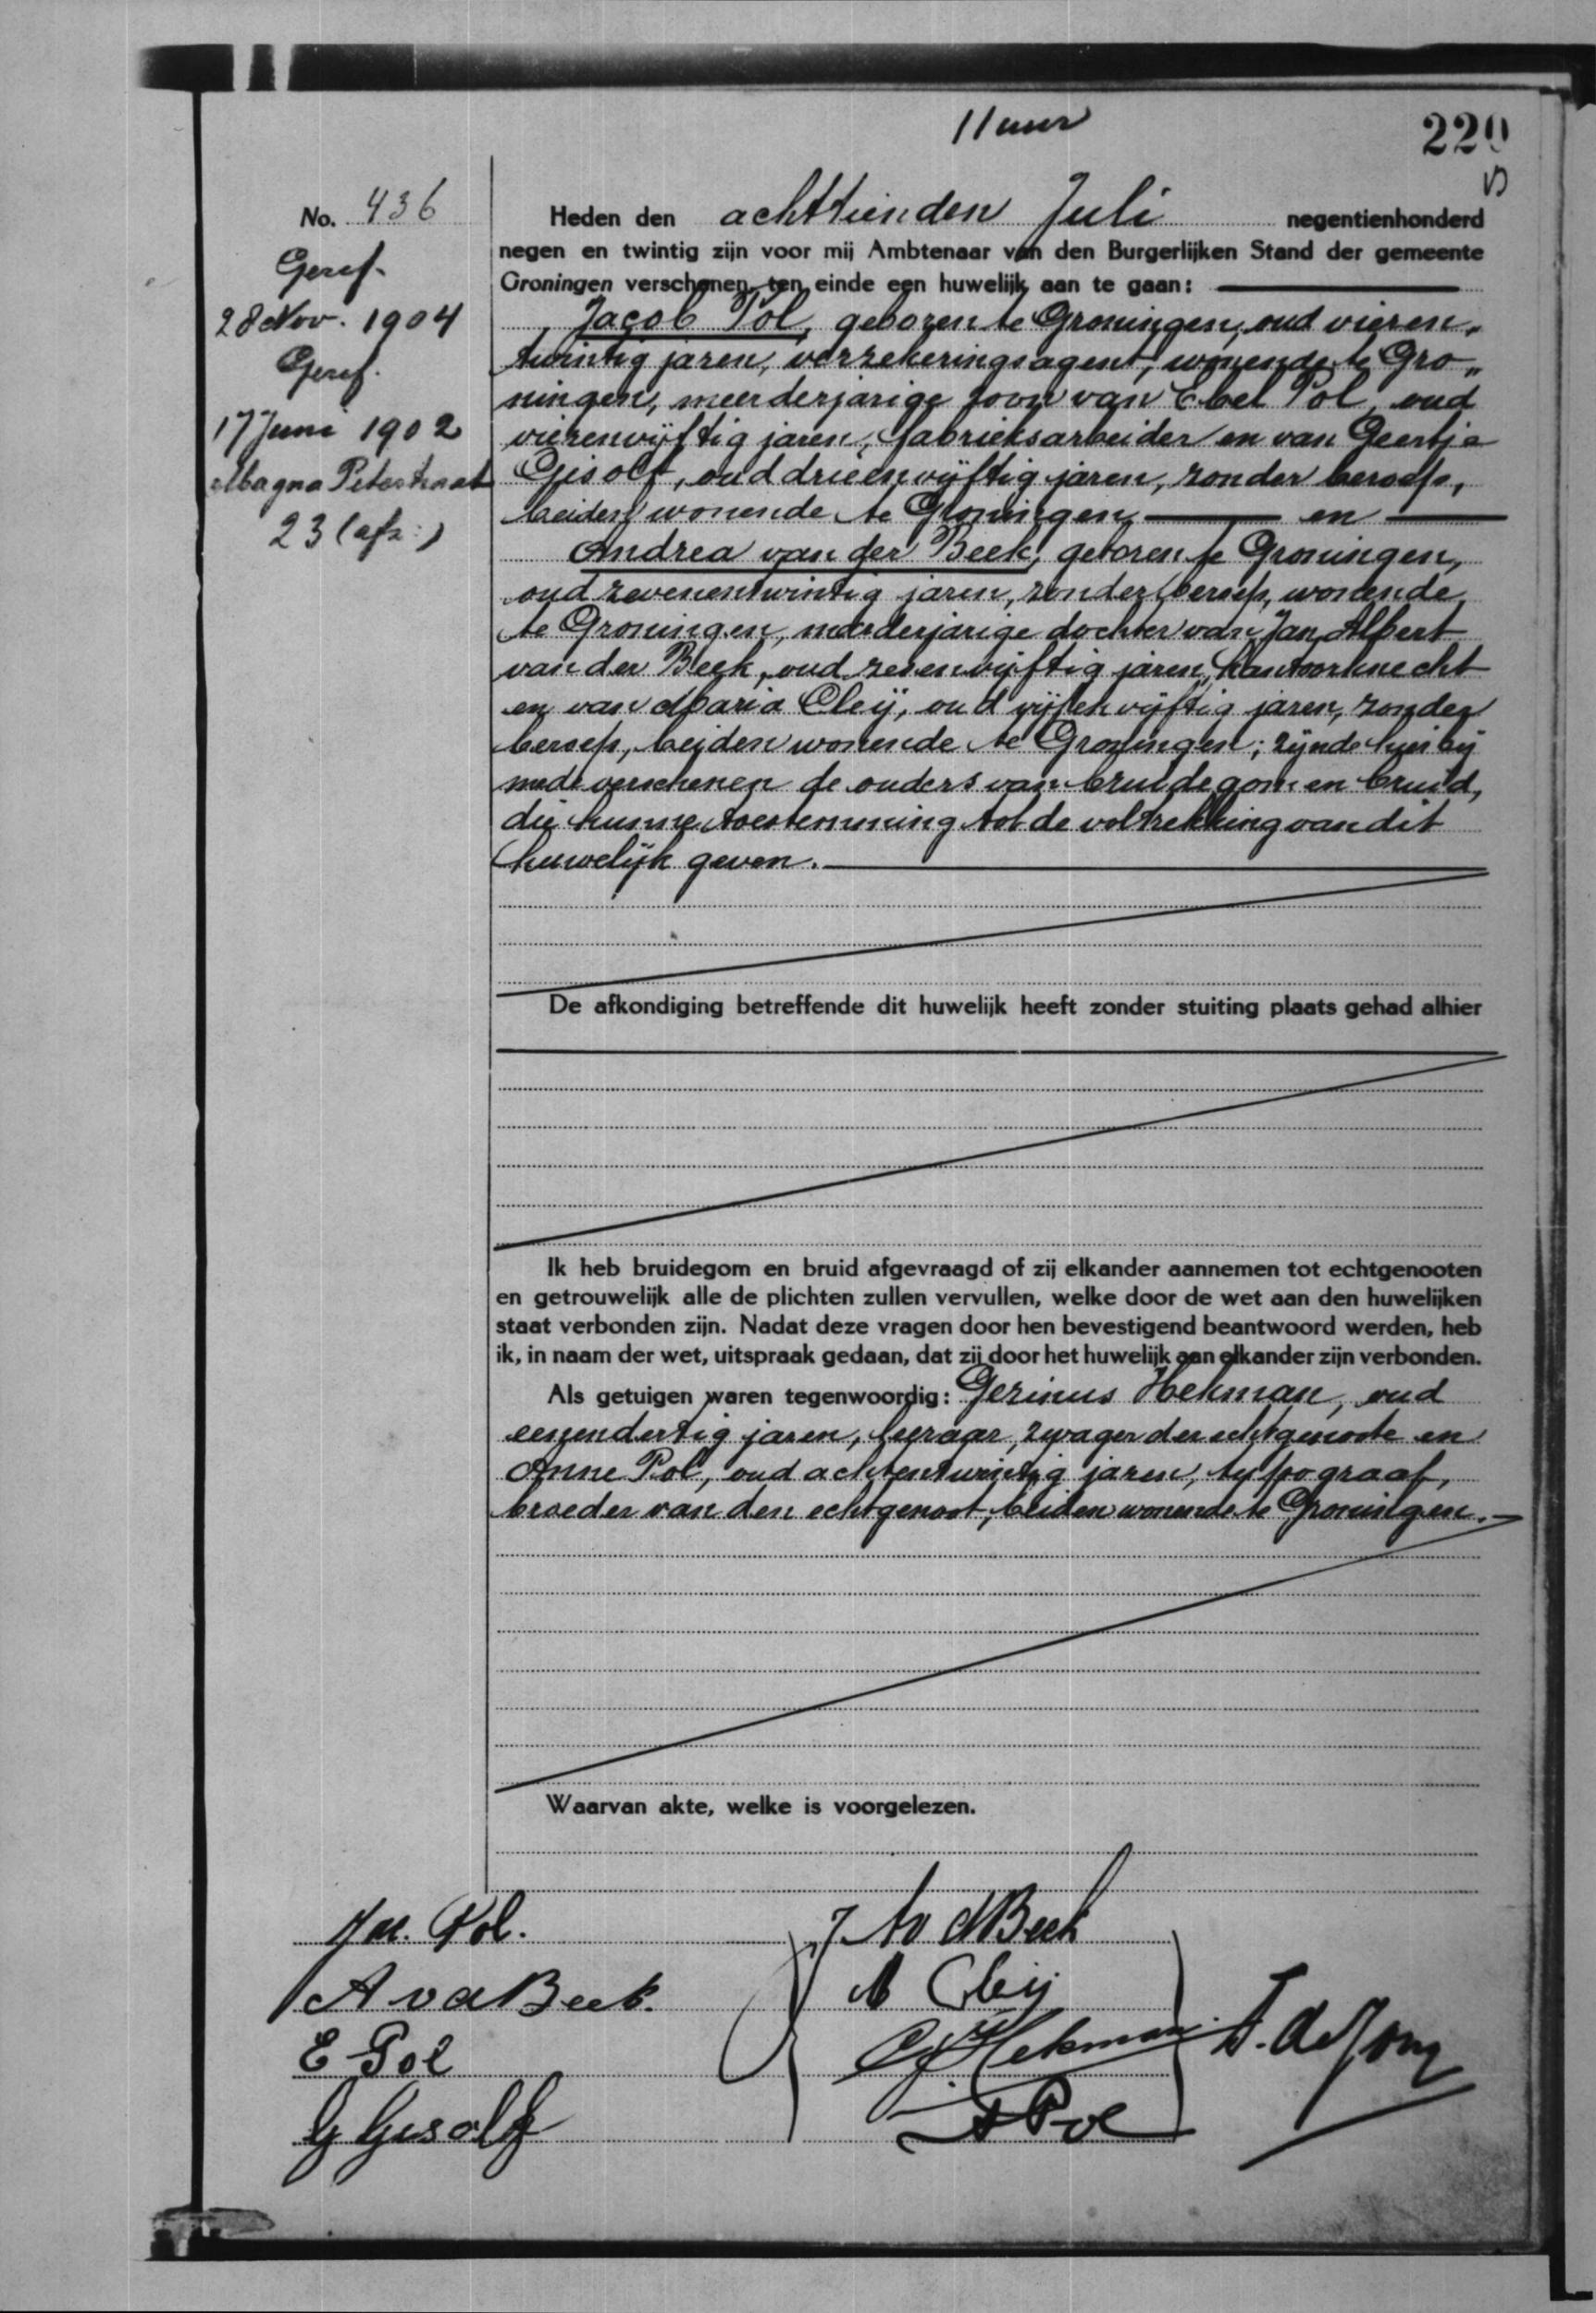 11 uur
220
No. 436
Geref.
28 Nov. 1904
Geref.
17 Juni 1902
Magna Petestraat
23 (afz:)
Heden den achttienden Juli negentienhonderd
negen en twintig zijn voor mij Ambtenaar van den Burgerlijken Stand der gemeente
Groningen verschenen, ten einde een huwelijk aan te gaan:
Jacob Pol, geboren te Groningen, oud vieren„
twintig jaren, verzekeringsagent, wonende te Gro„
ningen, meerderjarige zoon van Ebel Pol, oud
vierenvijftig jaren, fabrieksarbeider en van Geertje
Gisolf, oud drieenvijftig jaren, zonder beroep,
beiden wonende te Groningen en
Andrea van der Beek, geboren te Groningen,
oud zevenentwintig jaren, zonder beroep, wonende
te Groningen, meerderjarige dochter van Jan Albert
van der Beek, oud zesenvijftig jaren, kantoorknecht
en van Maria Cleij, oud vijfenvijftig jaren, zonder
beroep, beiden wonende te Groningen; zijnde hierbij
mede verschenen de ouders van bruidegom en bruid,
die hunne toestemming tot de voltrekking van dit
huwelijk geven.
De afkondiging betreffende dit huwelijk heeft zonder stuiting plaats gehad alhier
Ik heb bruidegom en bruid afgevraagd of zij elkander aannemen tot echtgenooten
en getrouwelijk alle de plichten zullen vervullen, welke door de wet aan den huwelijken
staat verbonden zijn. Nadat deze vragen door hen bevestigend beantwoord werden, heb
ik, in naam der wet, uitspraak gedaan, dat zij door het huwelijk aan elkander zijn verbonden.
Als getuigen waren tegenwoordig: Gerinus Hekman, oud
eenendertig jaren, leeraar, zwager der echtgenoote en
Anne Pol, oud achtentwintig jaren, typograaf,
broeder van den echtgenoot, beiden wonende te Groningen.
Waarvan akte, welke is voorgelezen.
Jac. Pol.
A v d Beek.
E Pol
G Gisolf
J A v d Beek
M Cleij
G Hekman
A Pol
J. de Jong